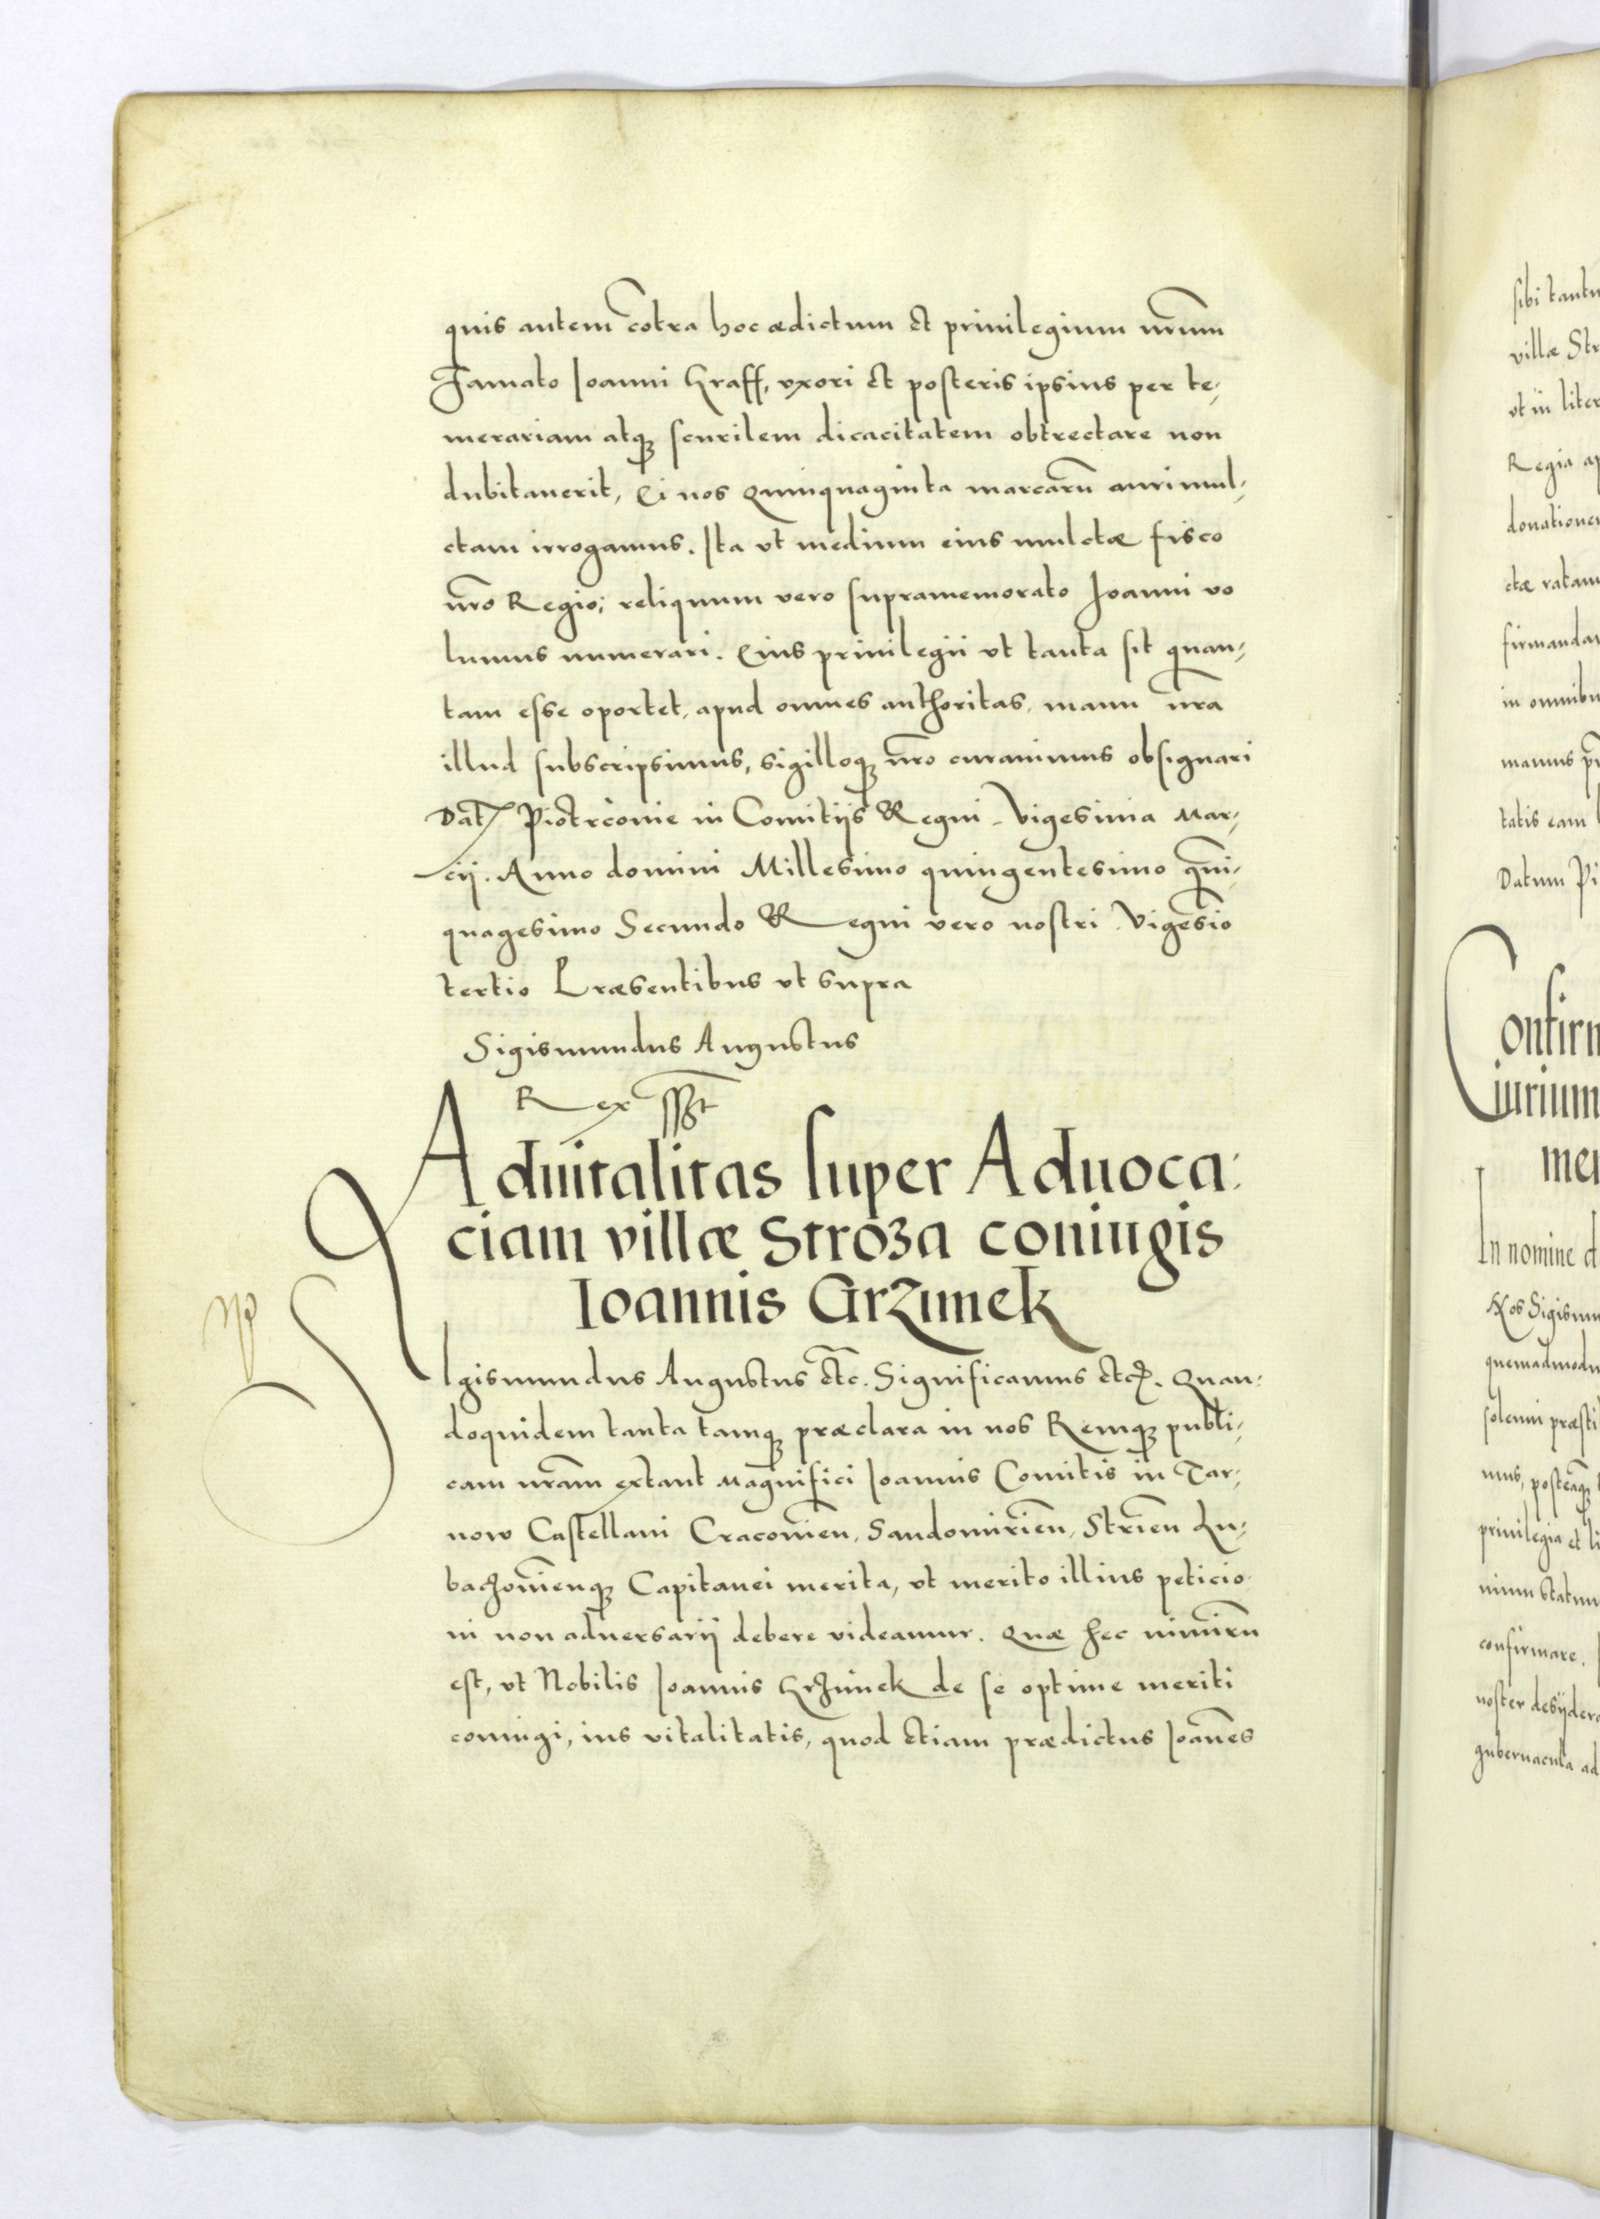 quis autem cõtra hoc ædictum et priuilegium nr̃um
Jamato Joanni Graff, vxori et posteris ipsius per te,
merariam atq; scurilem dicacitatem obtrectare non
dubitauerit, Ei nos Quinquaginta marcarũ auri mul,
ctam irrogamus. Ita vt medium eius mulctæ fisco
nr̃o Regio; reliquum vero supramemorato Joanni vo
lumus numerari. Eius priuilegii vt tanta sit quan,
tam esse oportet, apud omnes authoritas, manu nr̃a
illud subscripsimus, sigilloq; nr̃o curauimus obsignari
Dat Piotrconie in Comitijs Regni Vigesima Mar,
cij. Anno domini Millesimo quingentesimo qũi,
quagesimo Secundo Regni vero nostri Vigesĩo
tertio Præsentibus vt supra
Sigismundus Augustus
Rex sst
Aduitalitas super Aduoca:
ciam villæ Stróza coniugis
Ioannis Grzimek
SIgismundus Augustus etc̃. Significamus etc. Quan,
doquidem tanta tamq; præclara in nos Remq; publi,
cam nr̃am extant Magnifici Joannis Comitis in Tar,
now Castellani Cracovień, Sandomirień, Strień Lu,
baczovienq; Capitanei merita, vt merito illius peticio
ni non aduersarij debere videamur. Quæ hec nimirũ
est, vt Nobilis Joannis Grzimek de se optime meriti
coniugi, ius vitalitatis, quod etiam prædictus Joañes
sibi tantu
villæ Str
vt in liter
Regia ap
donatione
ctæ ratam
firmanda
in omnibu
manus
tatis eam
Datum Pi
Confirm
iurium
mer
In nomine d
Nos Sigismu
quemadmodu
solemni præsti
mus, posteaq;
priuilegia et li
nium statuu
confirmare.
noster desijdera
gubernacula ad